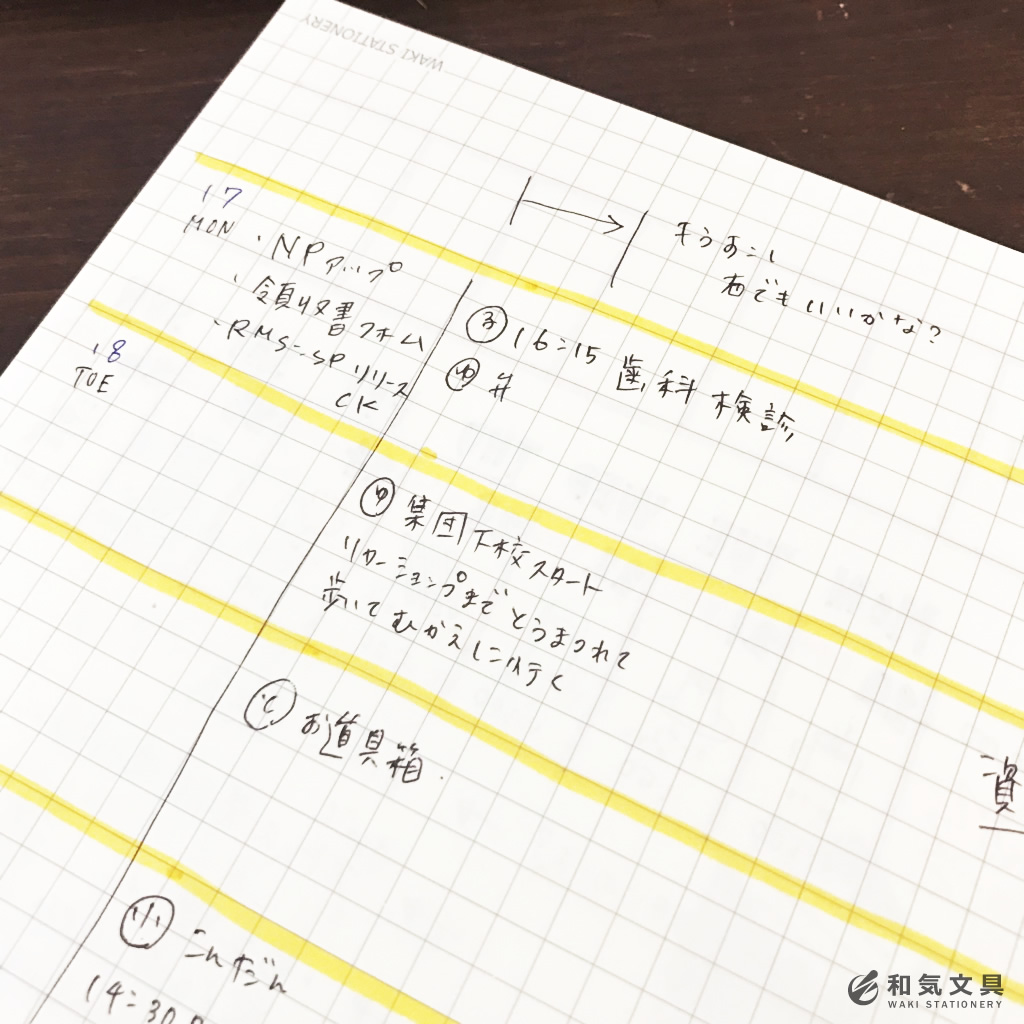 WAKI STATIONERY
もう少し
右でもいいかな?
17
MON
・NPアップ
・領収書フォーム
・RMS:SPリリース
CK
子 16:15 歯科検診
ゆ 弁
18
TUE
ゆ 集団下校スタート
リカーションプまで とうまつれて
歩いて むかえしに行く
と お道具箱
小 こんだん
14:30
資
和気文具
WAKI STATIONERY